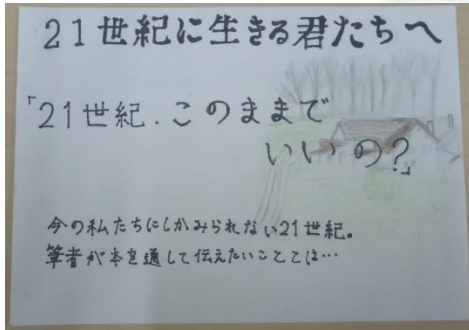 21世紀に生きる君たちへ
「21世紀.このままで
いいの?」
今の私たちにしかみられない21世紀。
筆者が本を通して伝えたいこととは…